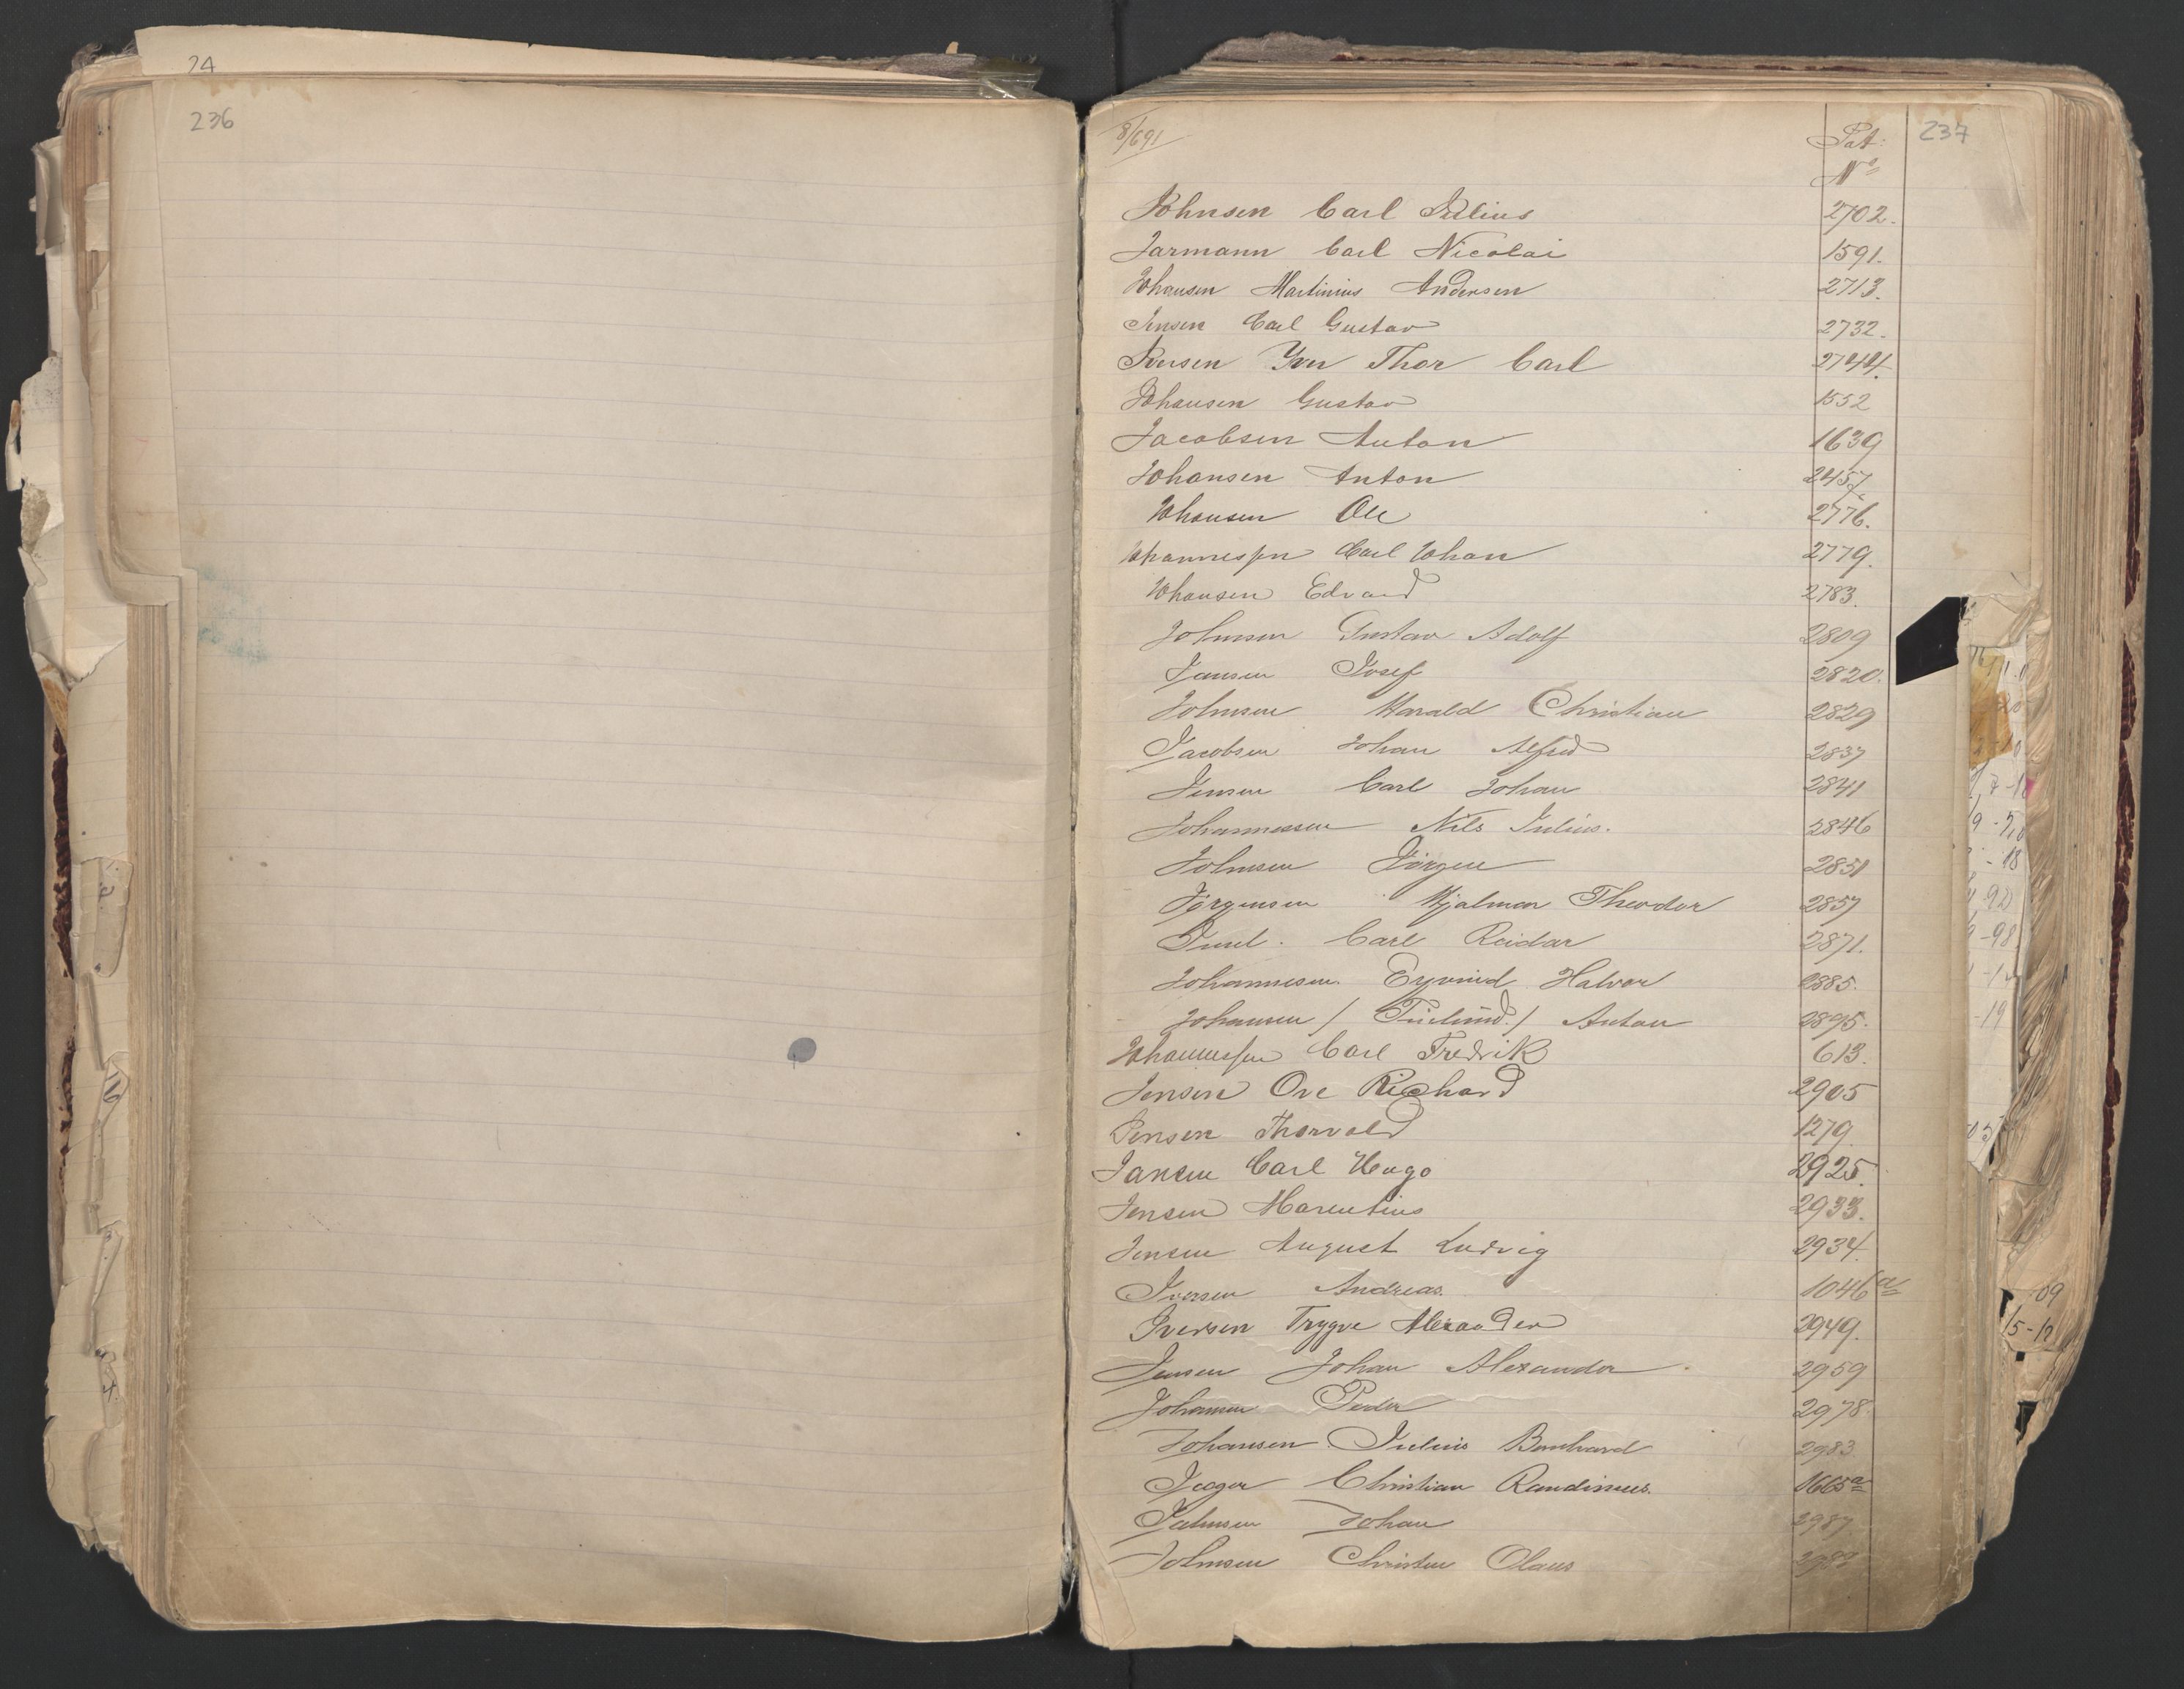 24
236
8/691
Pat:
237
No
Johnsen Carl Julius 2702.
Jarmann Carl Nicolai 1591.
Johansen Martinius Andersen 2713.
Jensen Carl Gustav 2732.
Iversen Iver Thor Carl 2744.
Johansen Gustav 1552
Jacobsen Anton 1639
Johansen Anton 2457
Johansen Ole 2776.
Johannessen Carl Johan 2779.
Johansen Edvard 2783.
Johnsen Gustav Adolf 2809
Jansen Josef 2820.
Johnsen Harald Christian 2829
Jacobsen Johan Alfred 2837
Jensen Carl Johan 2841
Johannessen Nils Julius. 2846
Johnsen Jörgen 2851
Jörgensen Hjalmar Theodor 2857
Juul. Carl Reidar 2871.
Johannesen. Eyvind Halvor 2885.
Johansen / / Anton 2895.
Johannessen Carl Fredrik 613.
Jensen Ove Richard 2905
Jensen Thorvald 1279.
Jansen Carl Hugo 2925.
Jensen Marentius 2933.
Jensen August Ludvig 2934.
Iversen Andreas. 1046 a
Iversen Trygve Alexander 2949.
Jensen Johan Alexander 2959
Johansen Peder 2978.
Johansen Julius Bernhard 2983
Jæger Christian Randinius. 1665 a
Johnsen Johan 2987.
Johnsen Christen Olaus